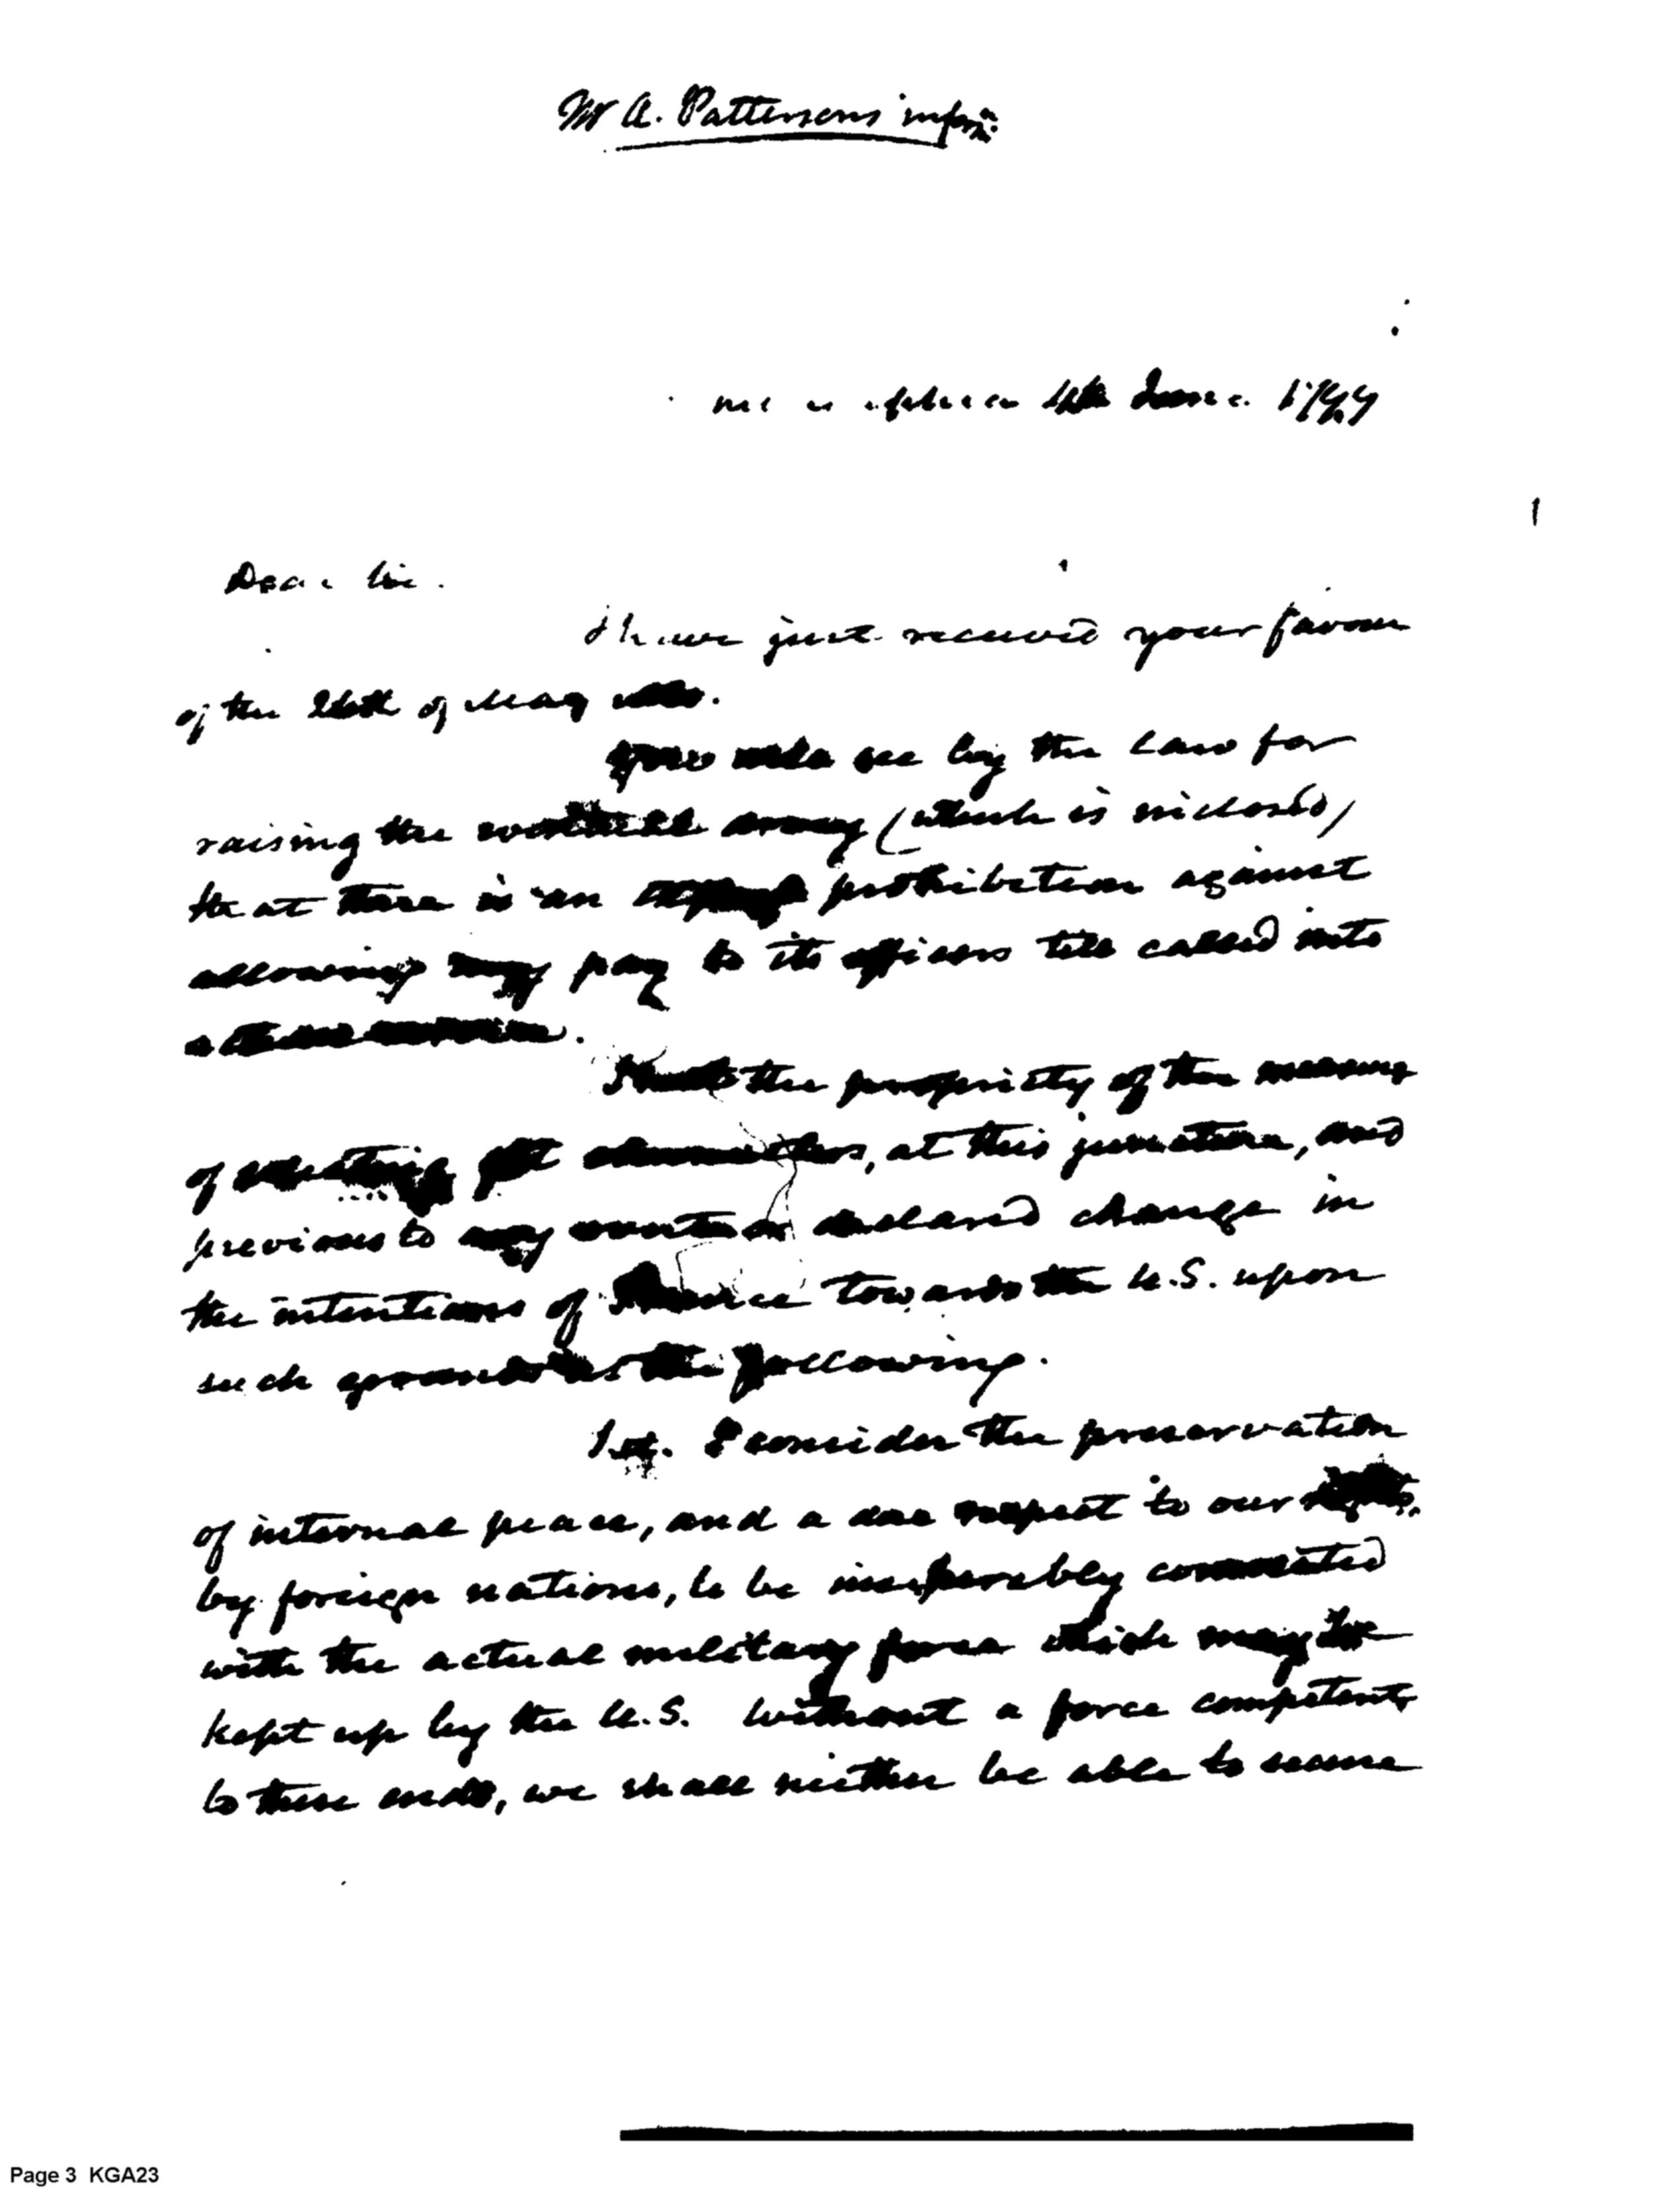 W A. Pattersons
June 1799
Dear Sir.
I have just received your favour
of the of May
You will see by the Law for
raising the army (which is inclosed)
that there is an prohibition against
allowing any pay to its officers till called into
the propriety of the measure
of , at this juncture, and
previous to any change in
the intentions of France towards the U.S. upon
such grounds as the following.
1st. I consider the preservation
of internal peace, and a due respect to our
by foreign nations, to be inseparably connected
with the actual military force which may be
kept up by the U.S. Without a force competent
to these ends, we shall neither be able to secure
Page 3 KGA23